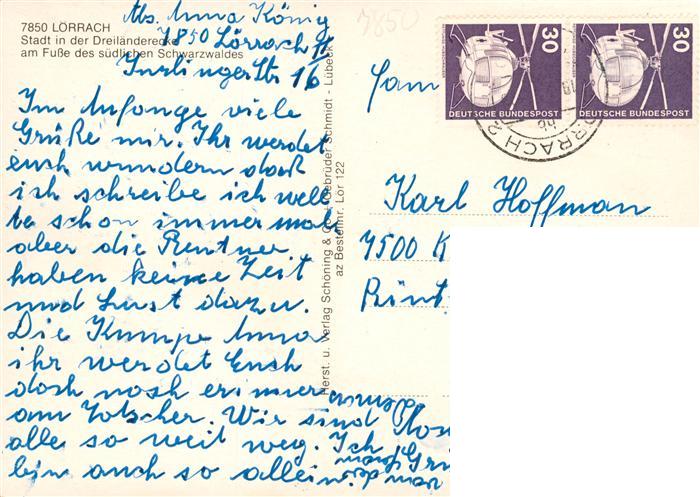 7850 LÖRRACH
Stadt in der Dreiländerecke
am Fuße des südlichen Schwarzwaldes
Abs. Anna König
7850 Lörrach
Im Anfange viele
Grüße mir. Ihr werdet
euch wundern daß
ich schreibe ich woll
te schon immer mal
aber die Rentner
haben keine Zeit
und Lust dazu.
Die Anna
ihr werdet Euch
doch noch erinnern
am Wir sind
alle so weit weg. Ich
bin auch so allein.
Herst. u. Verlag Schöning & Co + Gebrüder Schmidt - Lübeck
az Bestellnr. Lör 122
7850
30
DEUTSCHE BUNDESPOST
30
DEUTSCHE BUNDESPOST
LÖRRACH
Fam
Karl Hoffman
7500 K
Rint